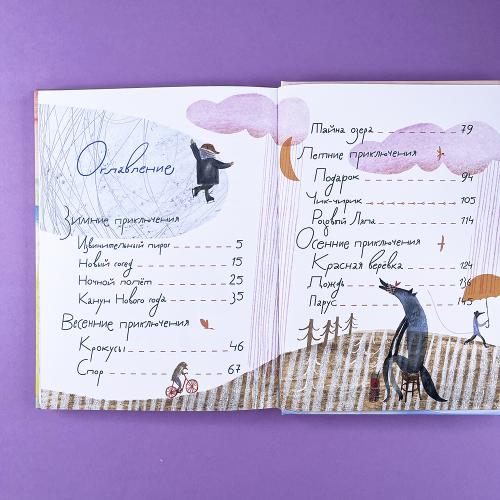 Оглавление
Зимние приключения
Извинительный пирог 5
Новый сосед 15
Ночной полёт 25
Канун Нового года 35
Весенние приключения
Крокусы 46
Спор 67
Тайна озера 79
Летние приключения
Подарок 94
Чик-чирик 105
Розовый Ляпа 114
Осенние приключения
Красная верёвка 124
Дождь 136
Парус 145